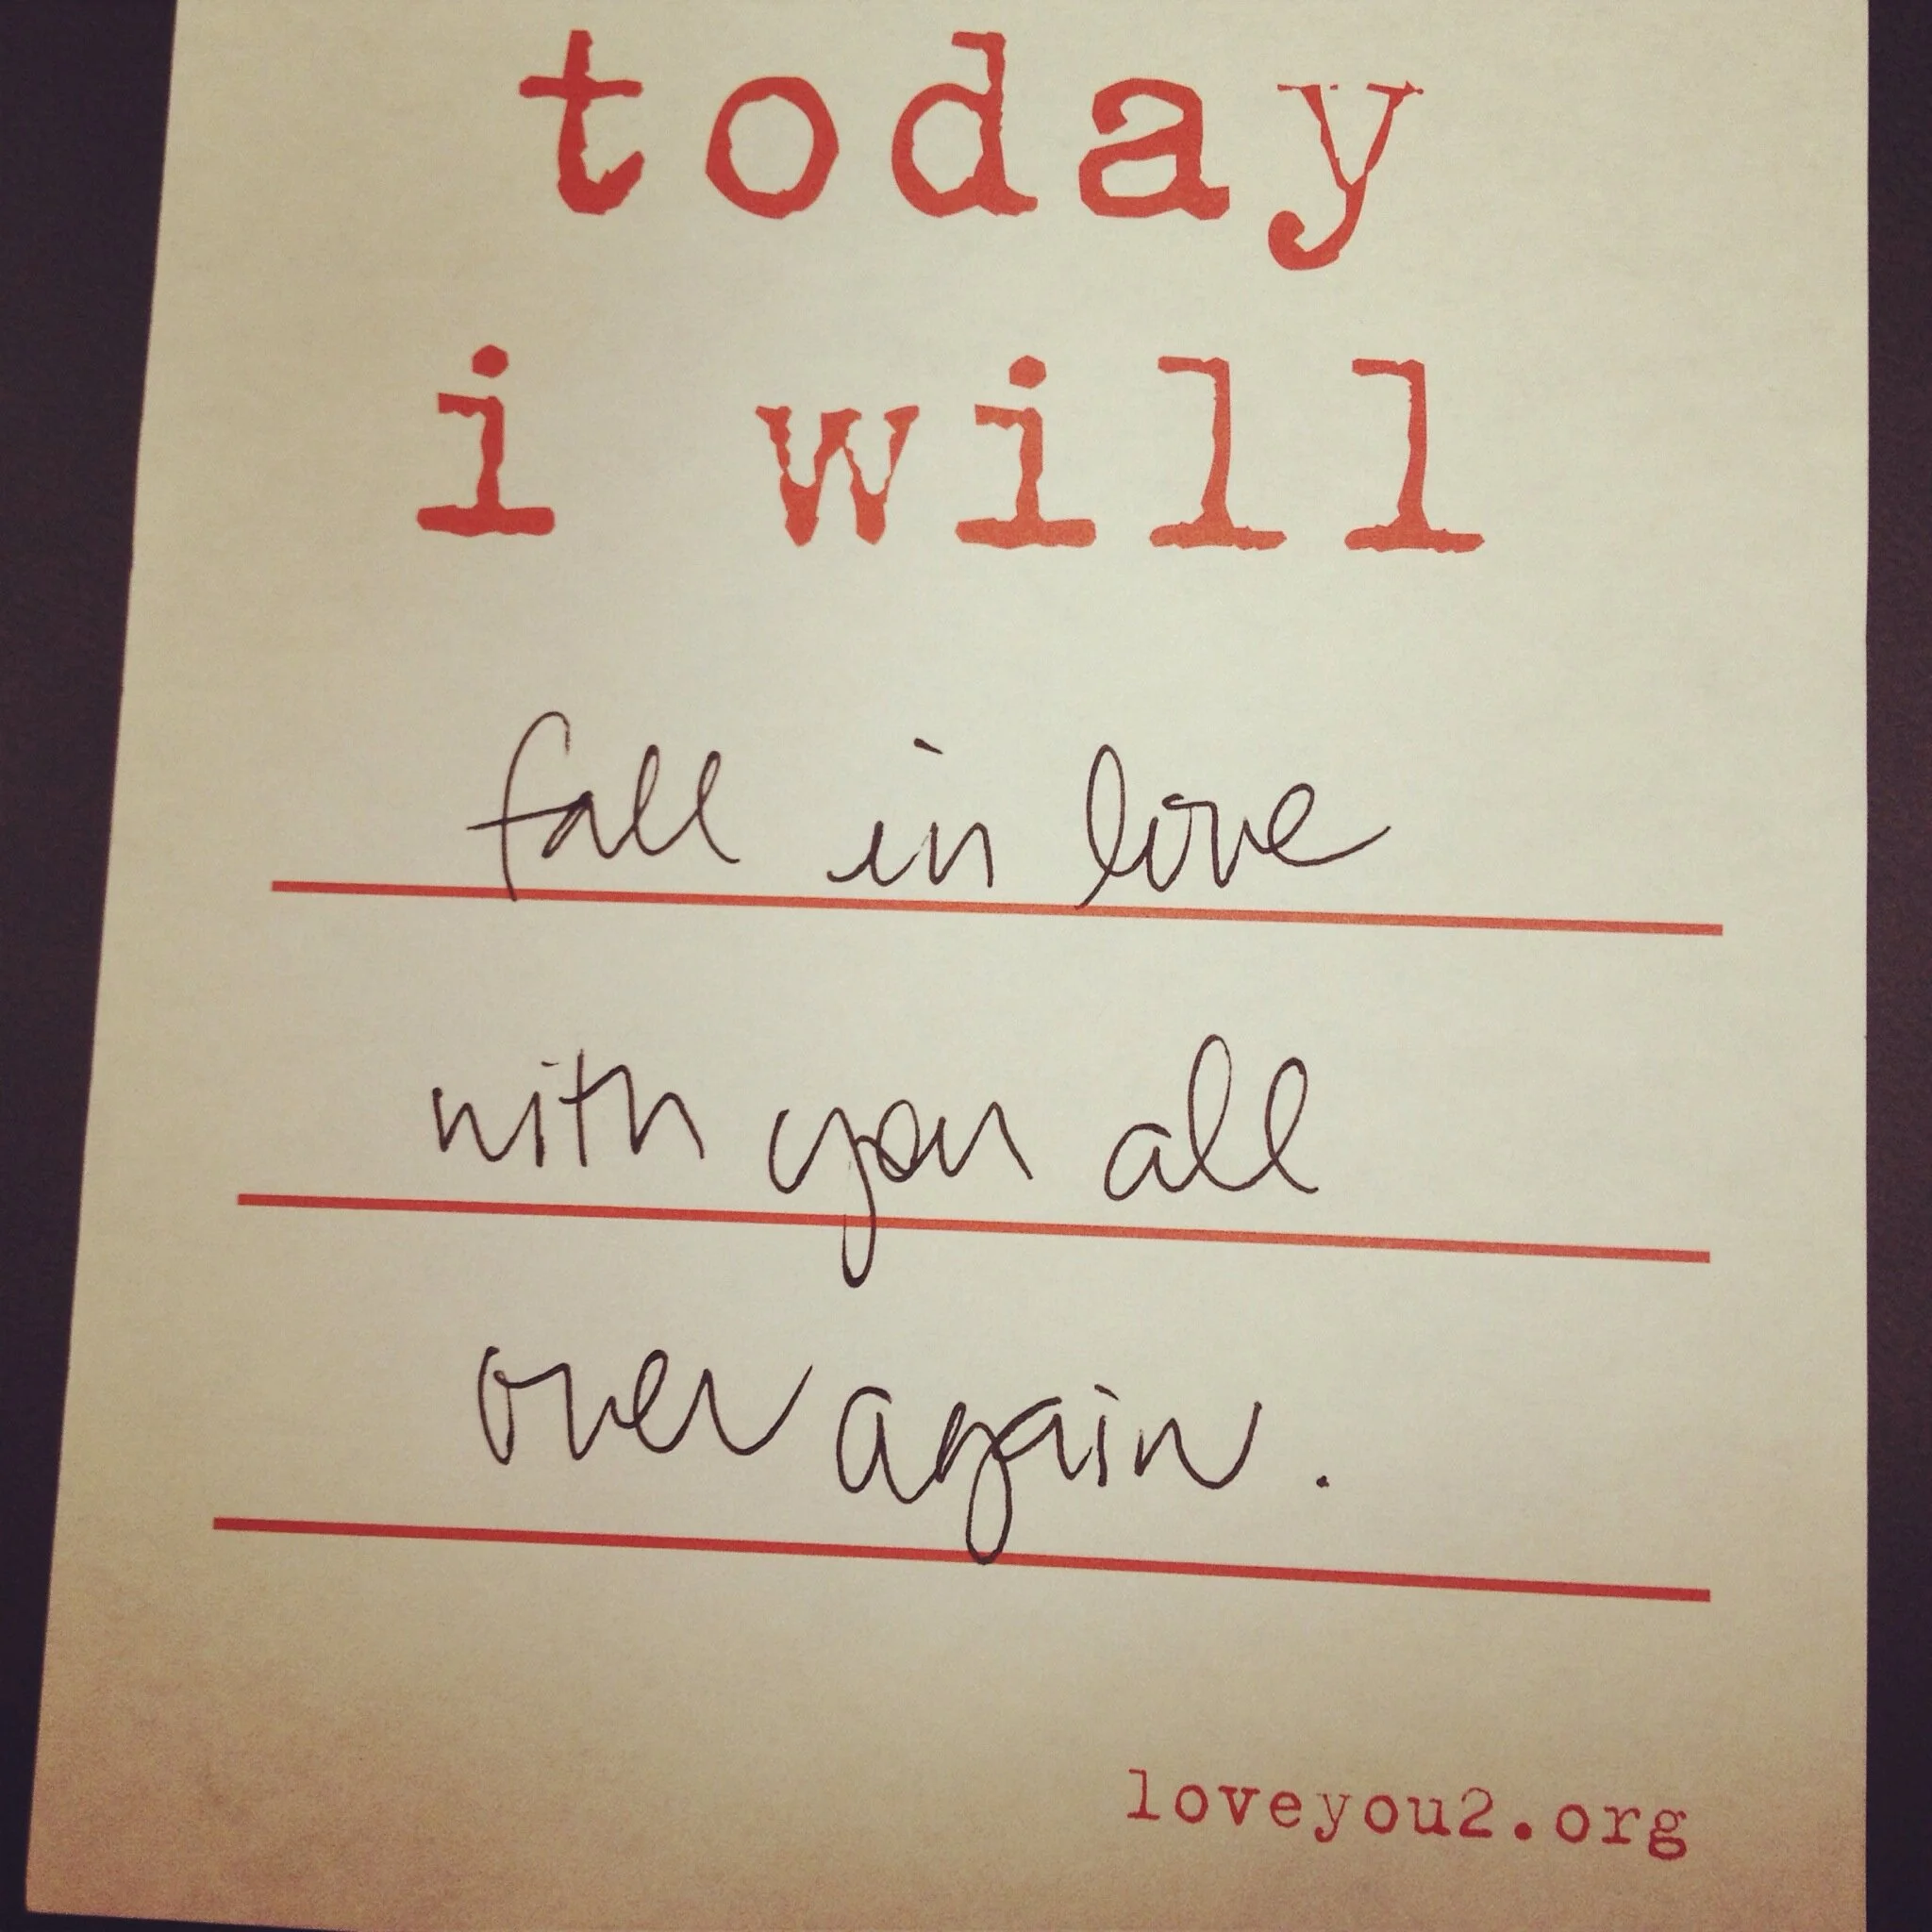 today
i will
fall in love
with you all
over again.
loveyou2.org